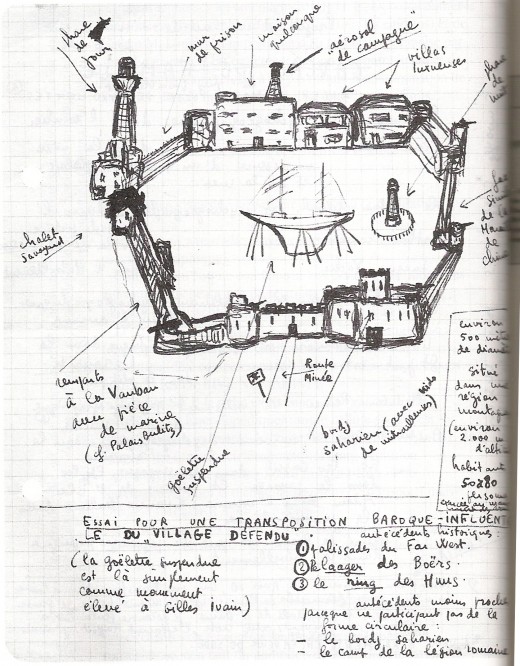 phare
de
jour
mur
de prison
maison
quelconque
"aérosol
de campagne"
villas
luxueuses
phare
de
nuit
de
chalet
savoyard
remparts
à la Vauban
avec pièce
de marine
(cf. Palais Bulitz)
goëlette
suspendue
Route
Mince
bordj
saharien (avec nids
de mitrailleuses)
environ
500 mèt
de diam
situé
dans une
région
montagn
(environ
2.000 m
d'alti
habitant
50 à 80
personn
ESSAI POUR UNE TRANSPOSITION BAROQUE-INFLUENT
LE DU "VILLAGE DÉFENDU"
(la goëlette suspendue
est là simplement
comme monument
élevé à Gilles Ivain)
antécédents historiques:
① palissades du Far West.
② klaager des Boërs.
③ le ring des Huns.
antécédents moins proche
parce que ne participant pas de la
forme circulaire:
- le bordj saharien
- le camp de la légion romaine